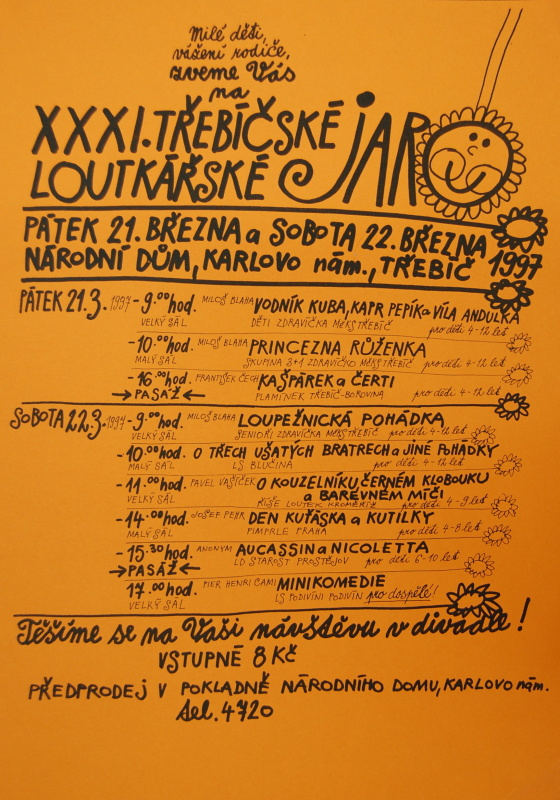 Milé děti,
vážení rodiče,
zveme Vás
na
XXXI. TŘEBÍČSKÉ
LOUTKÁŘSKÉ JARO
PÁTEK 21. BŘEZNA a SOBOTA 22. BŘEZNA 1997
NÁRODNÍ DŮM, KARLOVO nám., TŘEBÍČ
PÁTEK 21.3. 1997 - 9.00 hod. MILOŠ BLAHA VODNÍK KUBA, KAPR PEPÍK a VÍLA ANDULKA
VELKÝ SÁL DĚTI ZDRAVÍČKA MěKS TŘEBÍČ pro děti 4-12 let
- 10.00 hod. MILOŠ BLAHA PRINCEZNA RŮŽENKA
MALÝ SÁL SKUPINA 3+1 ZDRAVÍČKO MěKS TŘEBÍČ pro děti 4-12 let
- 16.00 hod. FRANTIŠEK ČECH KAŠPÁREK a ČERTI
→ PASÁŽ ← PLAMÍNEK TŘEBÍČ-BOROVINA pro děti 4-12 let
SOBOTA 22.3. 1997 - 9.00 hod. MILOŠ BLAHA LOUPEŽNICKÁ POHÁDKA
VELKÝ SÁL SENIOŘI ZDRAVÍČKA MěKS TŘEBÍČ pro děti 4-12 let
- 10.00 hod. O TŘECH UŠATÝCH BRATRECH a JINÉ POHÁDKY
MALÝ SÁL LS BLUČINA pro děti 4-12 let
- 11.00 hod. PAVEL VAŠÍČEK O KOUZELNÍKU, ČERNÉM KLOBOUKU
VELKÝ SÁL a BAREVNÉM MÍČI
ŘÍŠE LOUTEK KROMĚŘÍŽ pro děti 4-9 let
- 14.00 hod. JOSEF PEHR DEN KUŤÁSKA a KUTILKY
MALÝ SÁL PIMPRLE PRAHA pro děti 4-8 let
- 15.30 hod. ANONYM AUCASSIN a NICOLETTA
→ PASÁŽ ← LD STAROST PROSTĚJOV pro děti 6-10 let
17.00 hod. PIER HENRI CAMI MINIKOMEDIE
VELKÝ SÁL LS PODIVÍNI PODIVÍN pro dospělé!
Těšíme se na Vaši návštěvu v divadle!
VSTUPNÉ 8 KČ
PŘEDPRODEJ V POKLADNĚ NÁRODNÍHO DOMU, KARLOVO nám.
tel. 4720